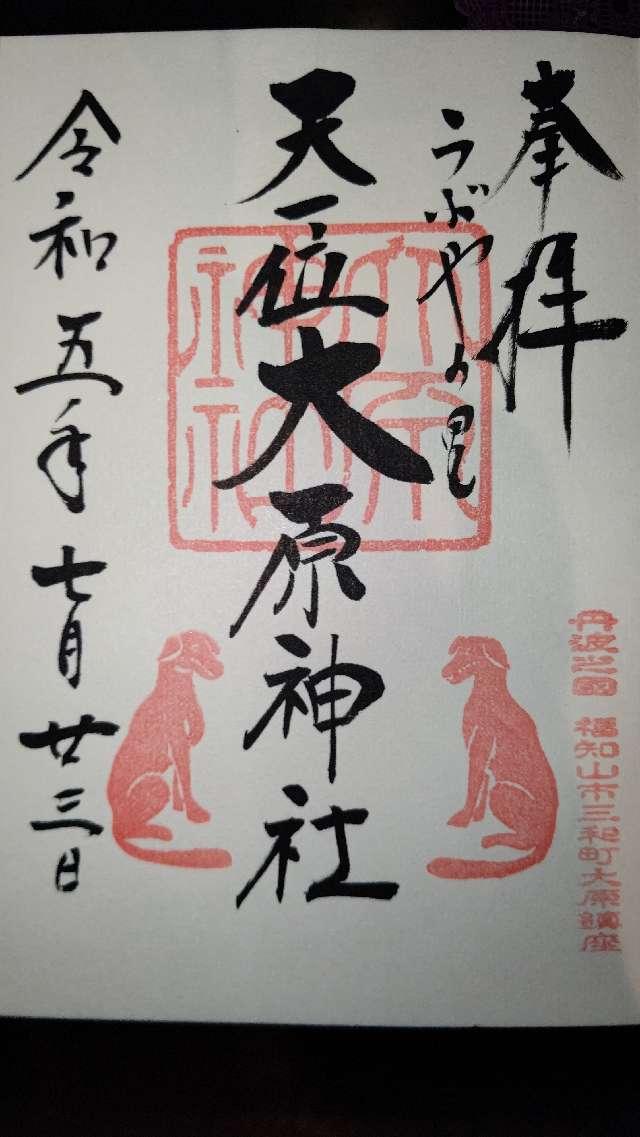 奉拝
うぶやの里
丹波之國 福知山市三和町大原鎮座
天一位大原神社
大原神社
令和五年七月廿三日